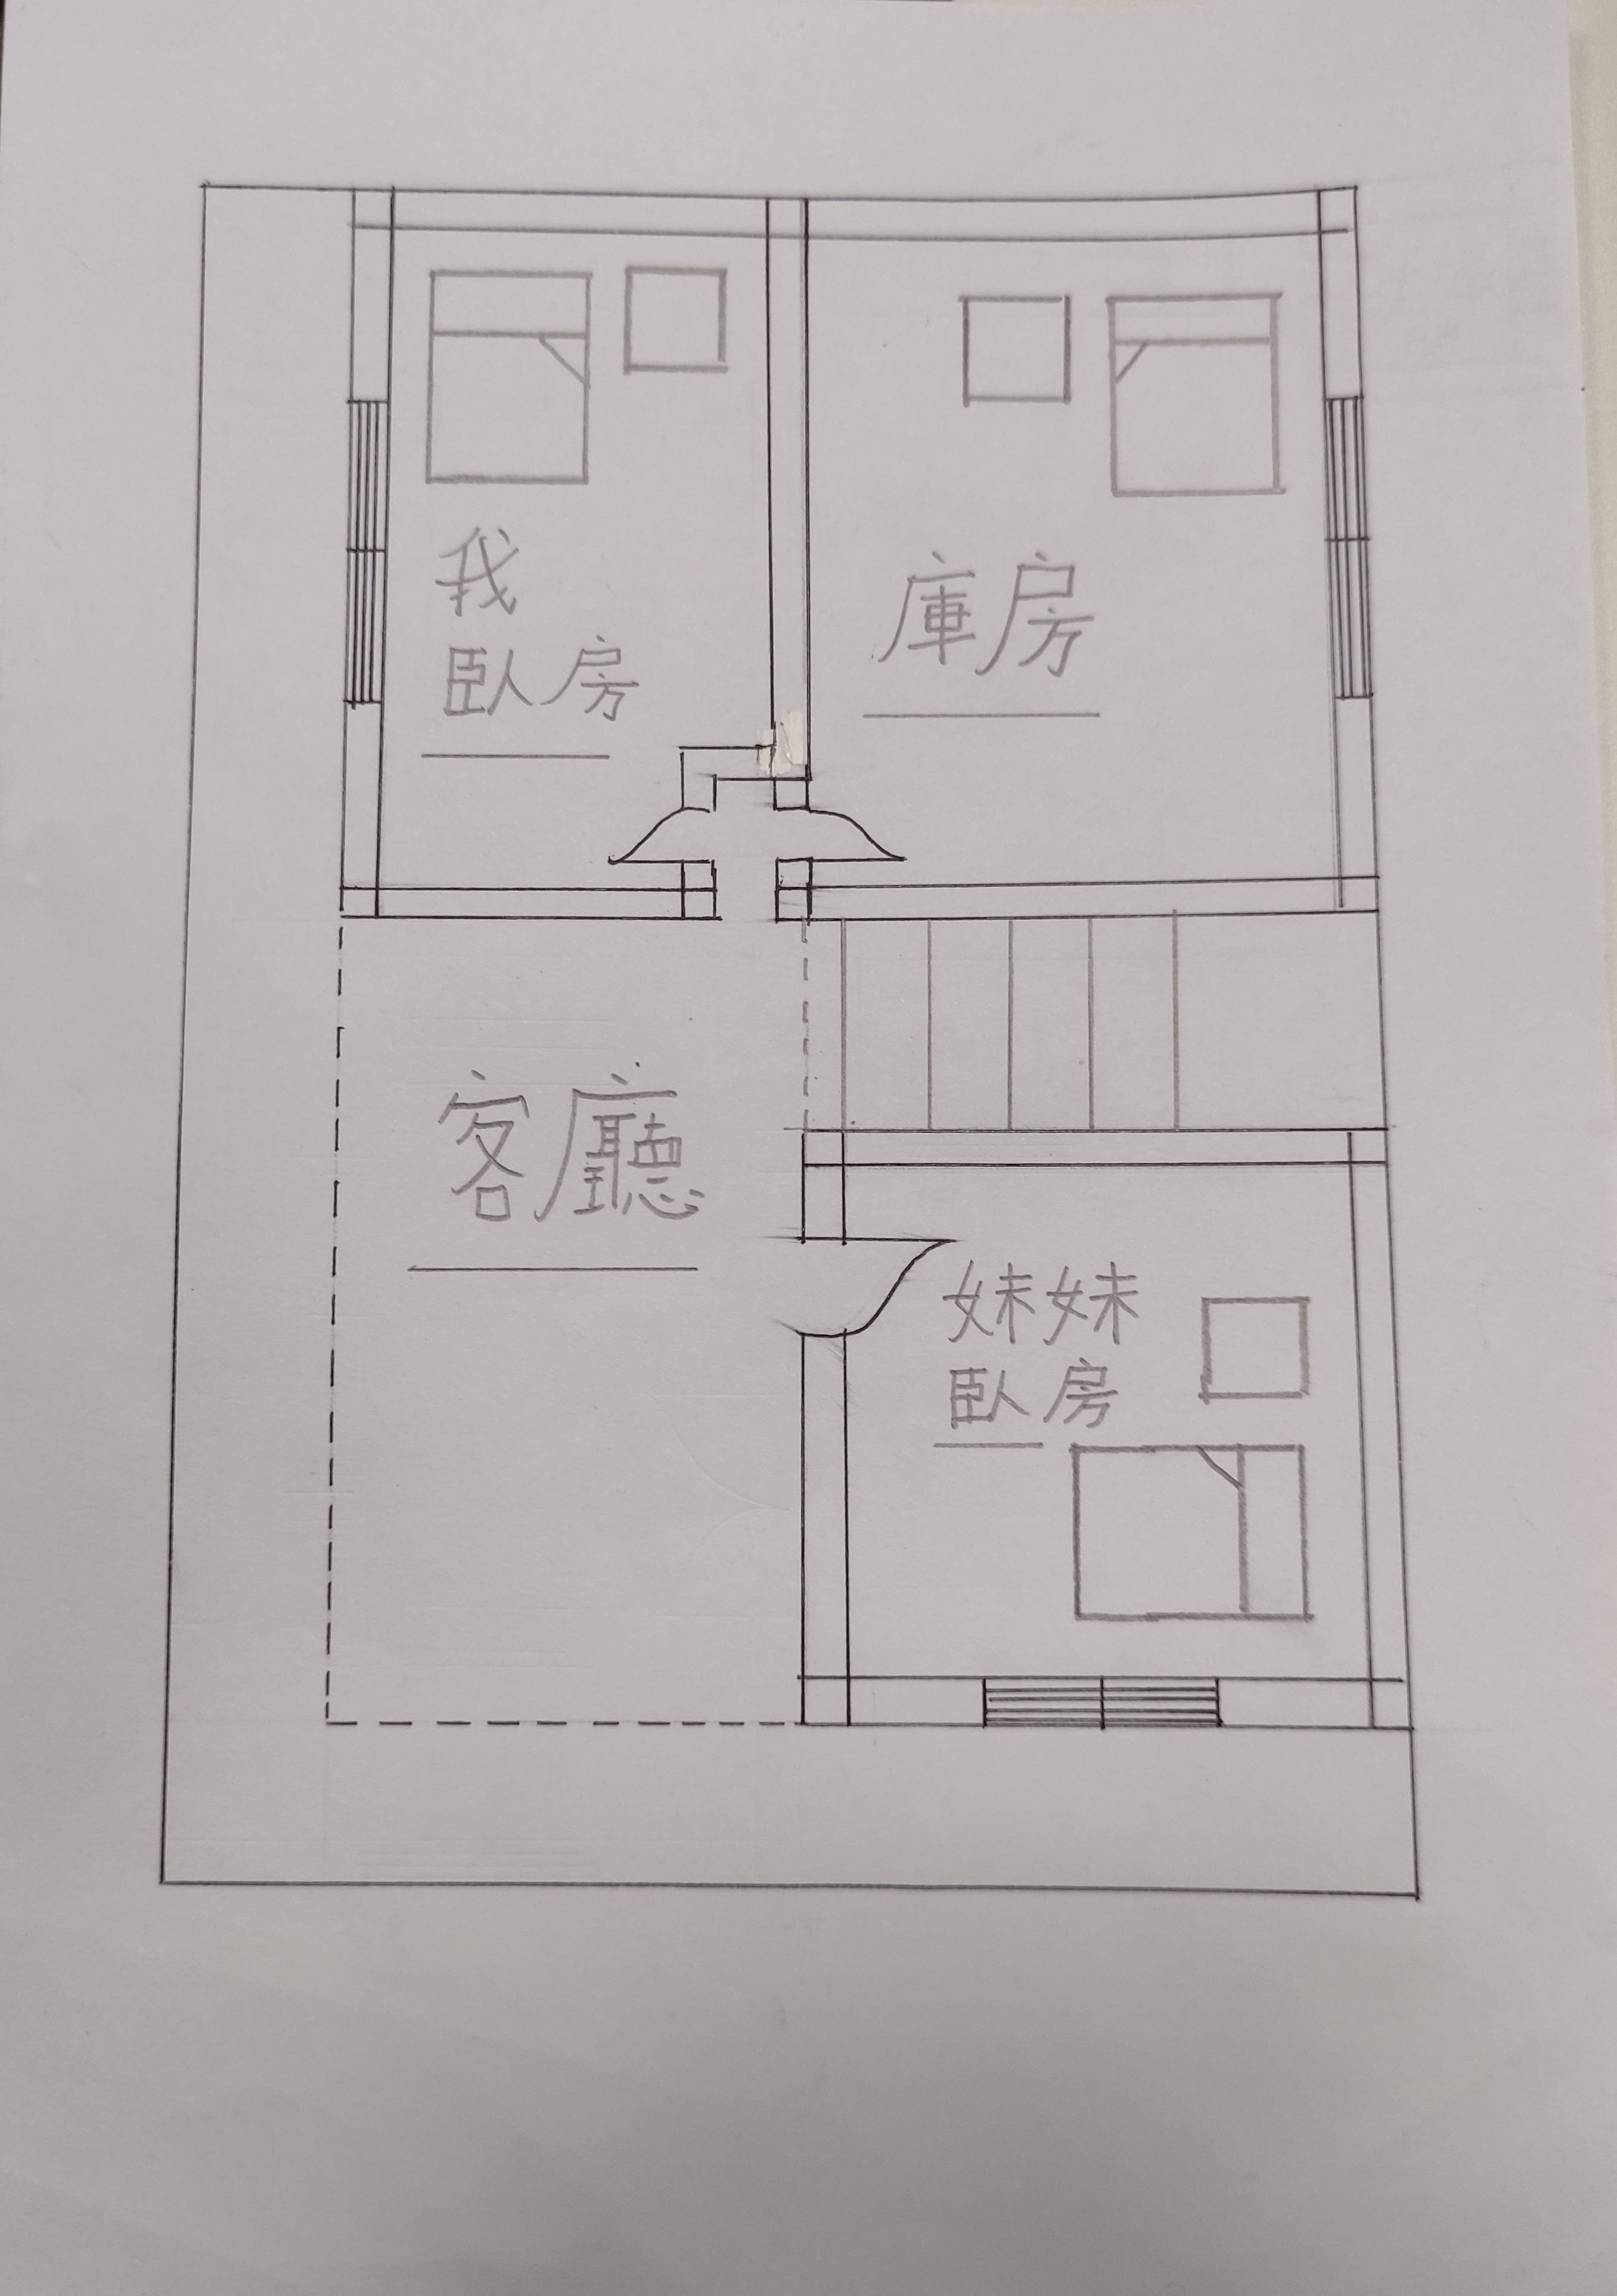 我
臥房
庫房
客廳
妹妹
臥房